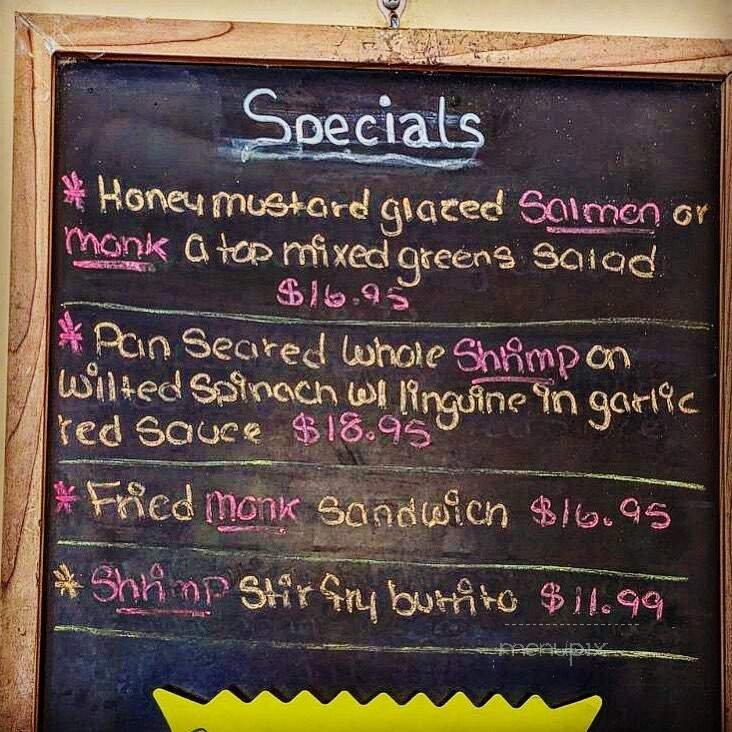 Specials
* Honey mustard glazed Salmon or
monk a top mixed greens salad
$16.95
* Pan Seared whole Shrimp on
wilted spinach w/ linguine in garlic
red sauce $18.95
* Fried monk sandwich $16.95
* Shrimp Stir fry burrito $11.99
menupix